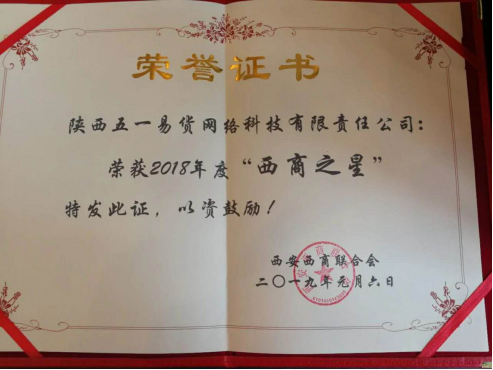 荣誉证书
陕西五一易货网络科技有限责任公司：
荣获2018年度“西商之星”
特发此证，以资鼓励！
西安西商联合会
二〇一九年元月六日